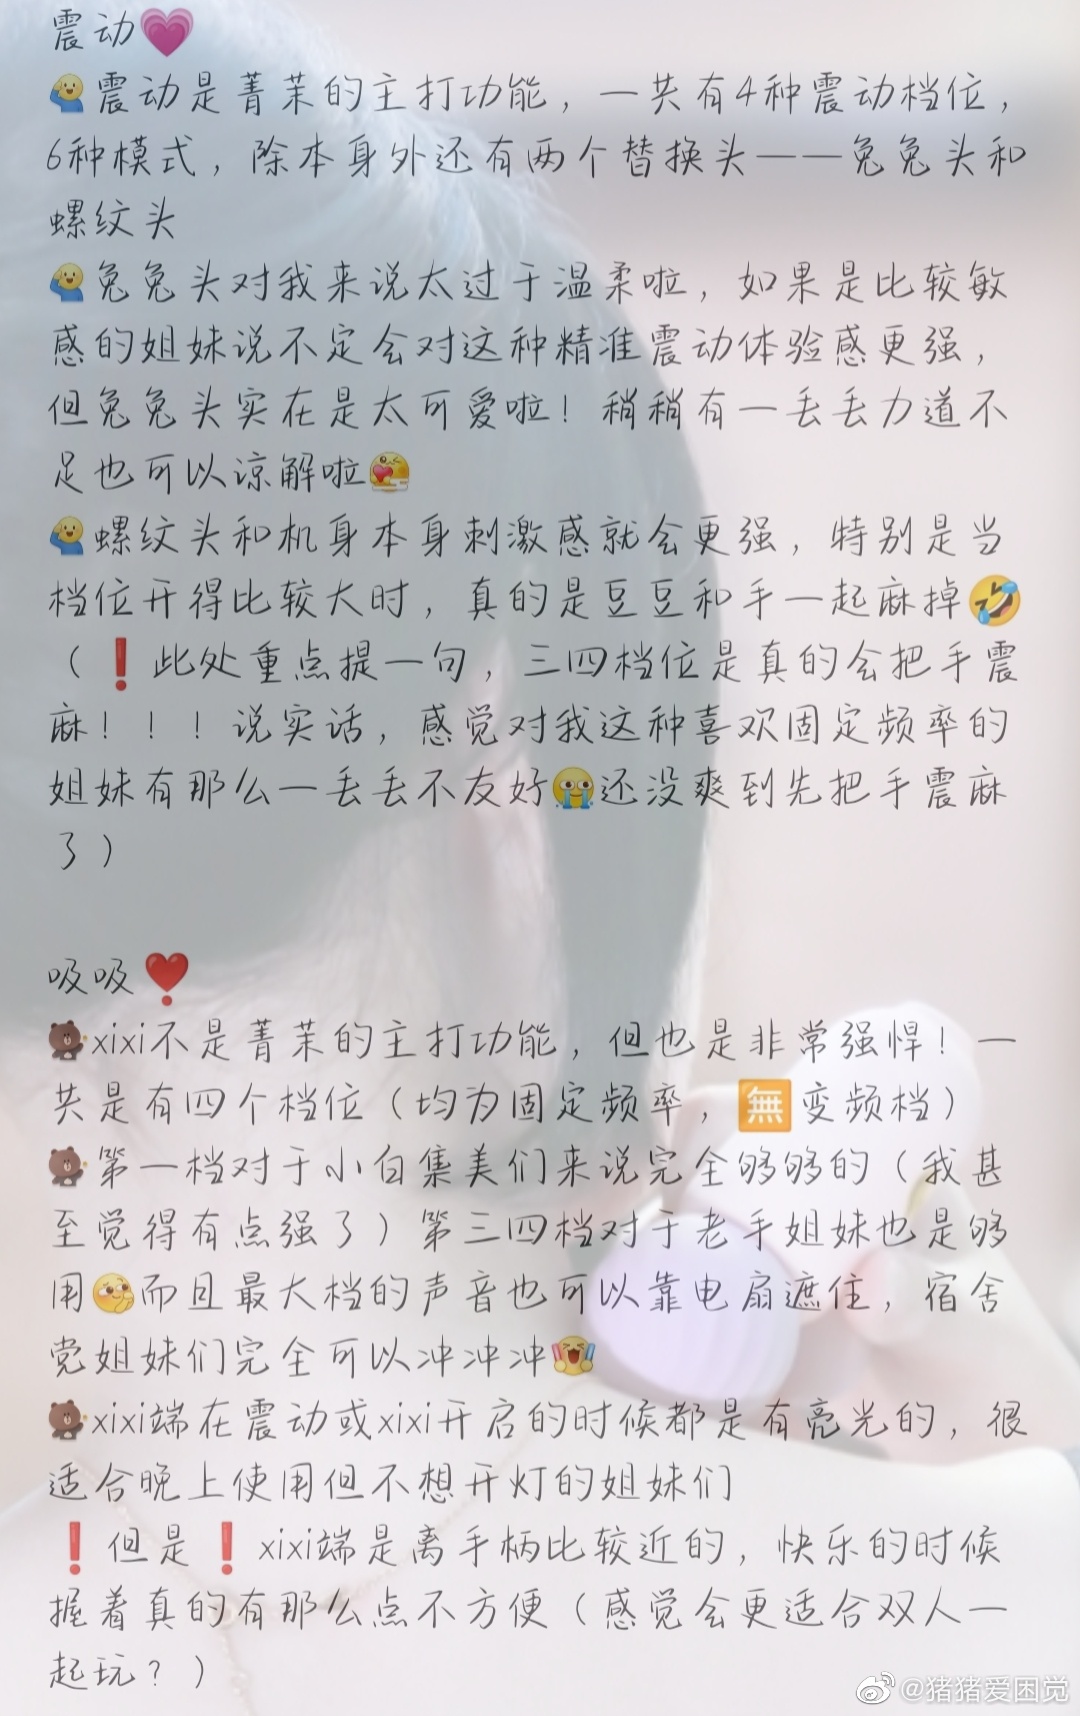 震动💗
震动是菁茉的主打功能，一共有4种震动档位，
6种模式，除本身外还有两个替换头——兔兔头和
螺纹头
兔兔头对我来说太过于温柔啦，如果是比较敏
感的姐妹说不定会对这种精准震动体验感更强，
但兔兔头实在是太可爱啦！稍稍有一丢丢力道不
足也可以谅解啦
螺纹头和机身本身刺激感就会更强，特别是当
档位开得比较大时，真的是豆豆和手一起麻掉🤣
（❗此处重点提一句，三四档位是真的会把手震
麻！！！说实话，感觉对我这种喜欢固定频率的
姐妹有那么一丢丢不友好😭还没爽到先把手震麻
了）
吸吸❣️
xixi不是菁茉的主打功能，但也是非常强悍！一
共是有四个档位（均为固定频率，🈚变频档）
第一档对于小白集美们来说完全够够的（我甚
至觉得有点强了）第三四档对于老手姐妹也是够
用而且最大档的声音也可以靠电扇遮住，宿舍
党姐妹们完全可以冲冲冲
xixi端在震动或xixi开启的时候都是有亮光的，很
适合晚上使用但不想开灯的姐妹们
❗但是❗xixi端是离手柄比较近的，快乐的时候
握着真的有那么点不方便（感觉会更适合双人一
起玩？）
@猪猪爱困觉